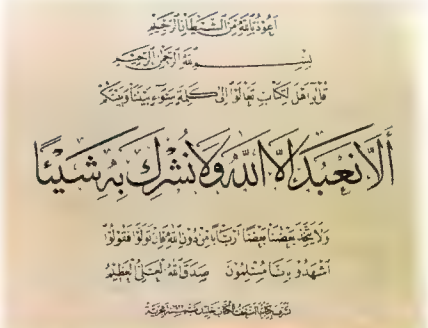 أعوذ بالله من الشيطان الرجيم
بسم الله الرحمن الرحيم
قل يا أهل الكتاب تعالوا إلى كلمة سواء بيننا وبينكم
ألا نعبد إلا الله ولا نشرك به شيئا
ولا يتخذ بعضنا بعضا أربابا من دون الله فإن تولوا فقولوا
اشهدوا بأنا مسلمون صدق الله العلي العظيم